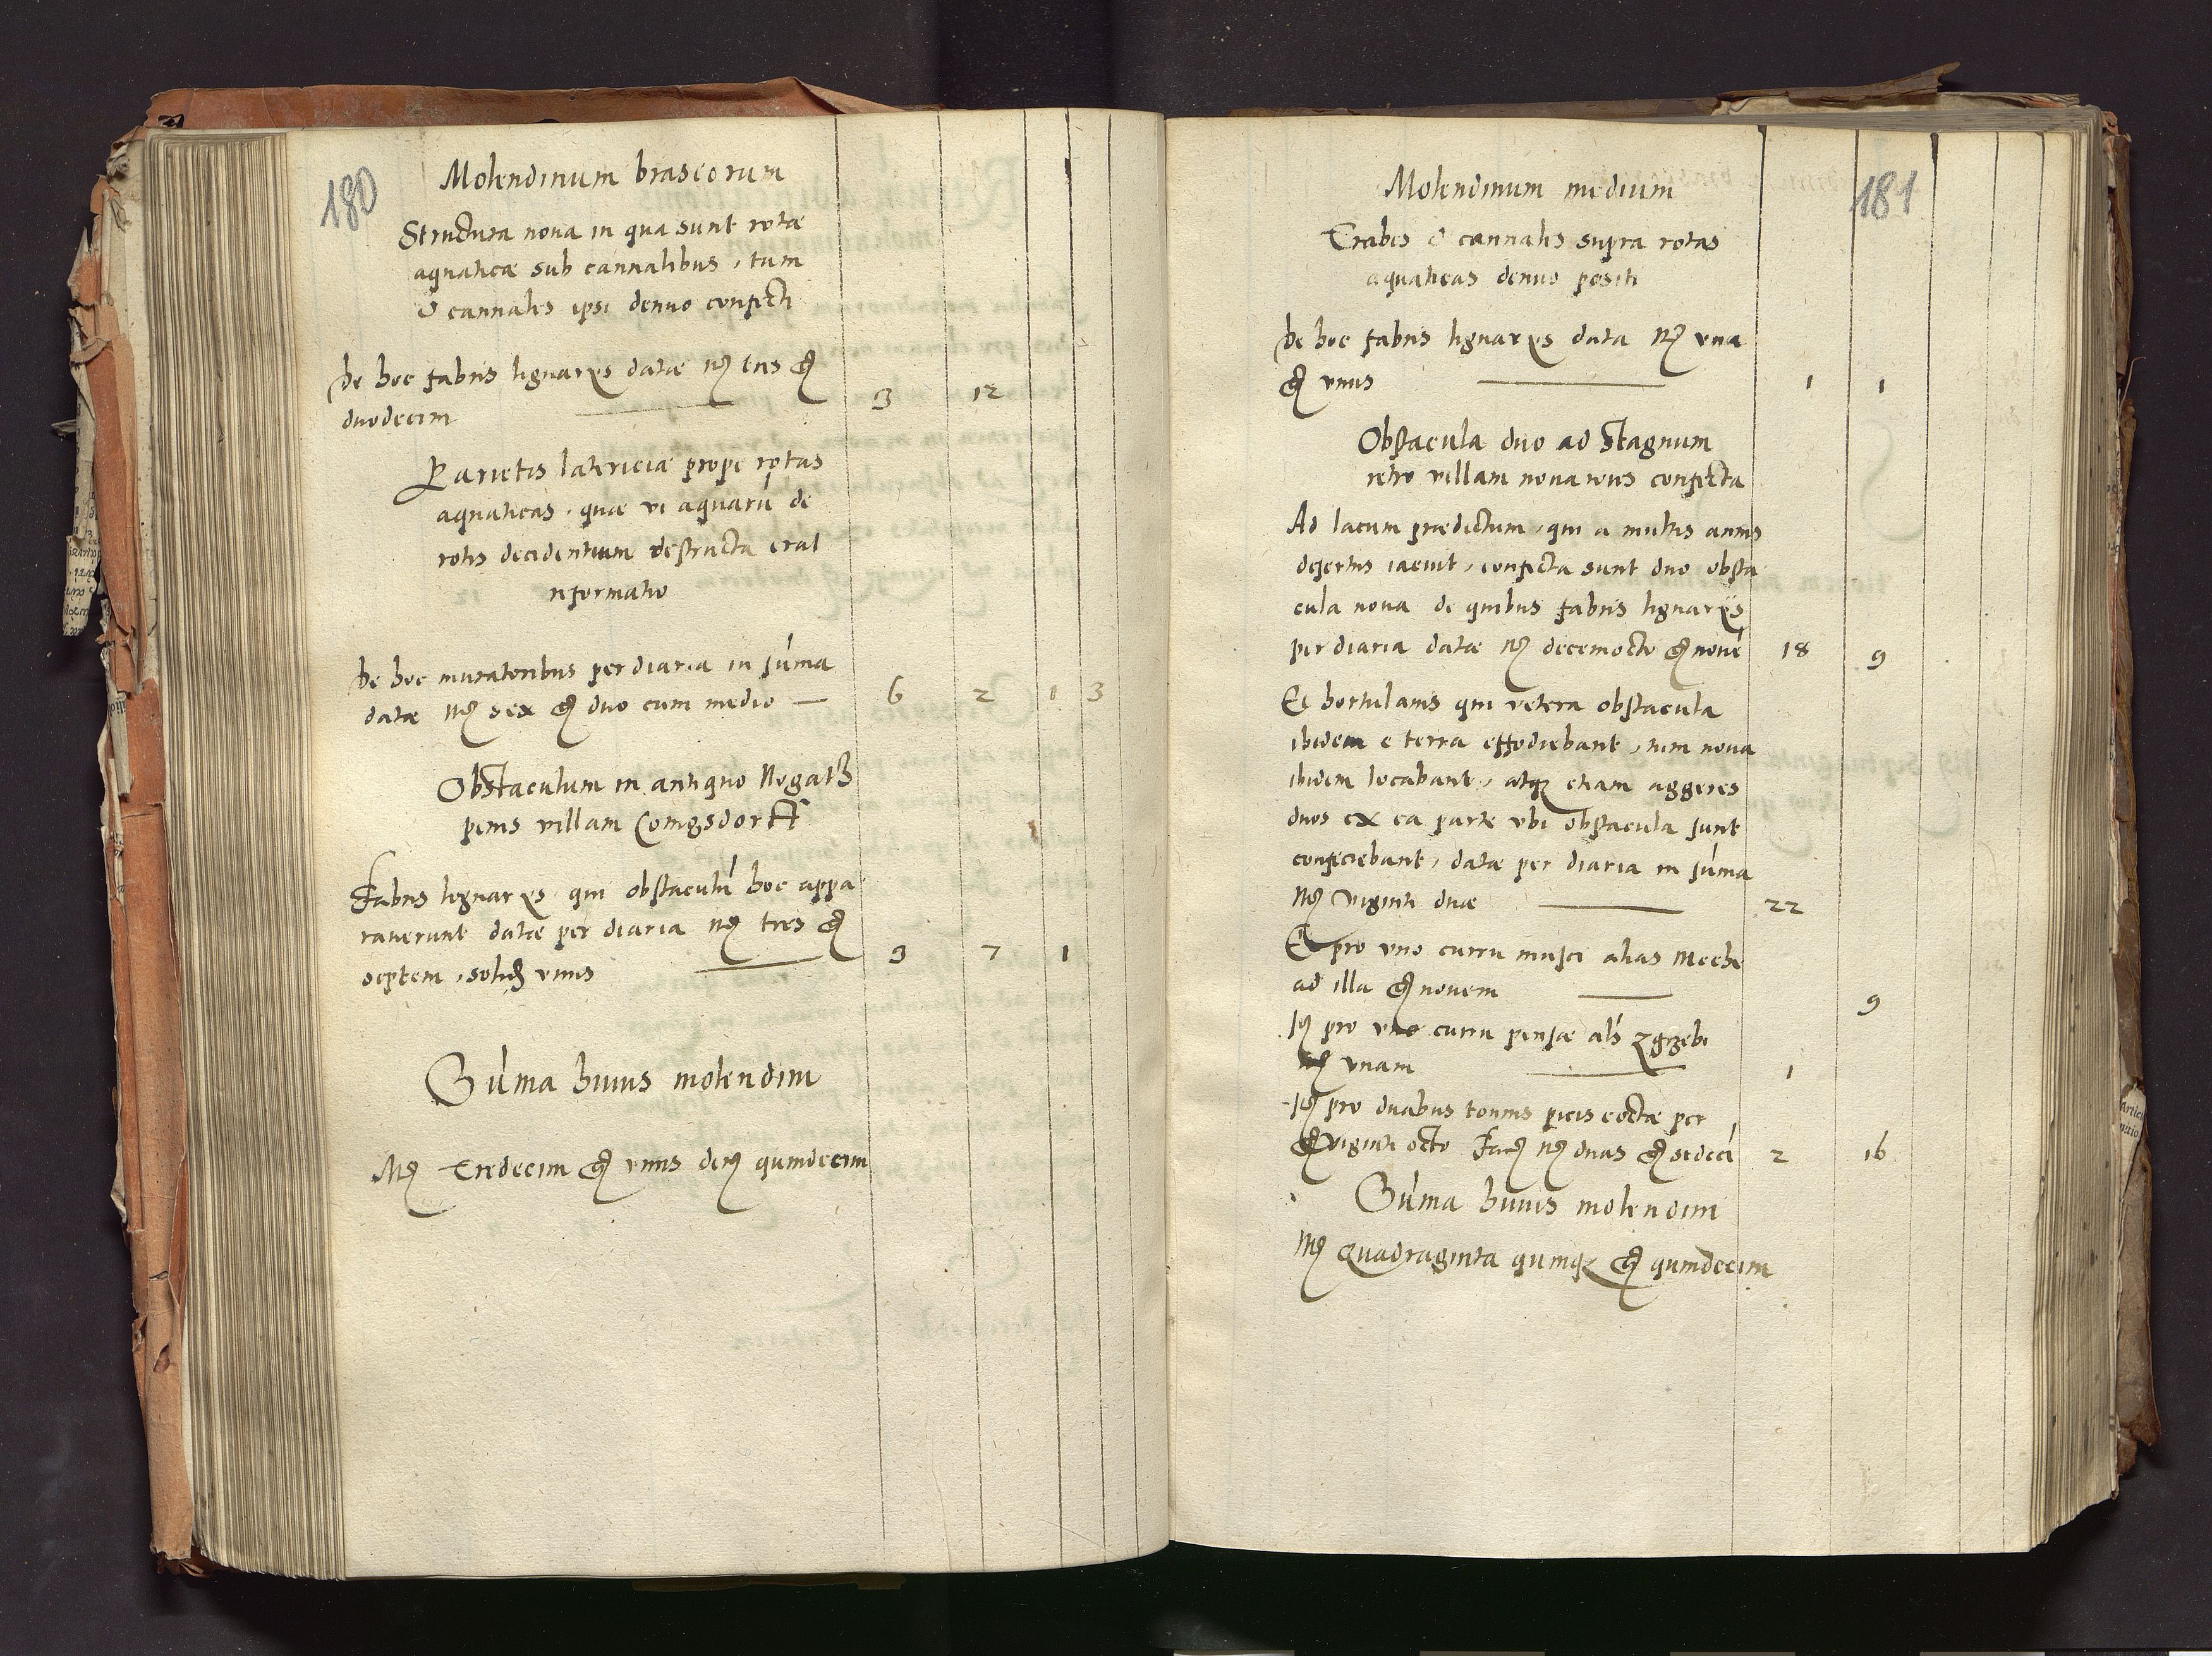 180
Molendinum braseorum
Structura noua in qua sunt rotæ
aquaticæ sub cannalibus, tum
& cannales ipsi denuo confecti
De hoc fabris lignarijs datæ mȩ tres gȩ
duodecim 3 12
Parietis latericiæ prope rotas
aquaticas, quæ vi aquarū de
rotis decidentium destructa erat
reformatio
De hoc muratoribus per diaria in sūma
datæ mȩ sex gȩ duo cum medio 6 2 1 3
Obstaculum in antiquo Nogatz
penes villam Conigsdorff
Fabris lignarijs qui obstaculū hoc appa
rauerunt datæ per diaria mȩ tres gȩ
septem, solidȩ vnus 3 7 1
Sūma huius molendini
Mȩ Tredecim gȩ vnus denȩ quindecim
181
Molendinum medium
Trabes & cannales supra rotas
aquaticas denuo positi
De hoc fabris lignarijs data mȩ vna
gȩ vnus 1 1
Obstacula duo ad Stagnum
retro villam nouarous confecta
Ad lacum prædictum, qui a multis annis
desertus iacuit, confecta sunt duo obsta
cula noua de quibus fabris lignarijs
per diaria datæ mȩ decemocto gȩ nouē 18 9
Et hortulanis qui vetera obstacula
ibidem e terra effodiebant, tum noua
ibidem locabant, atqȝ etiam aggeres
duos ex ea parte vbi obstacula sunt
conficiebant, datæ per diaria in sūma
mȩ viginti duæ 22
Et pro vno curru musci alias Mechu
ad illa gȩ nouem 9
Itȩ pro vno curru pensæ als zgrzebi
mȩ vnam 1
Itȩ pro duabus tonnis picis coctæ per
gȩ viginti octo facȩ mȩ duas gȩ sedecī 2 16
Sūma huius molendini
Mȩ Quadraginta quinqȝ gȩ quindecim